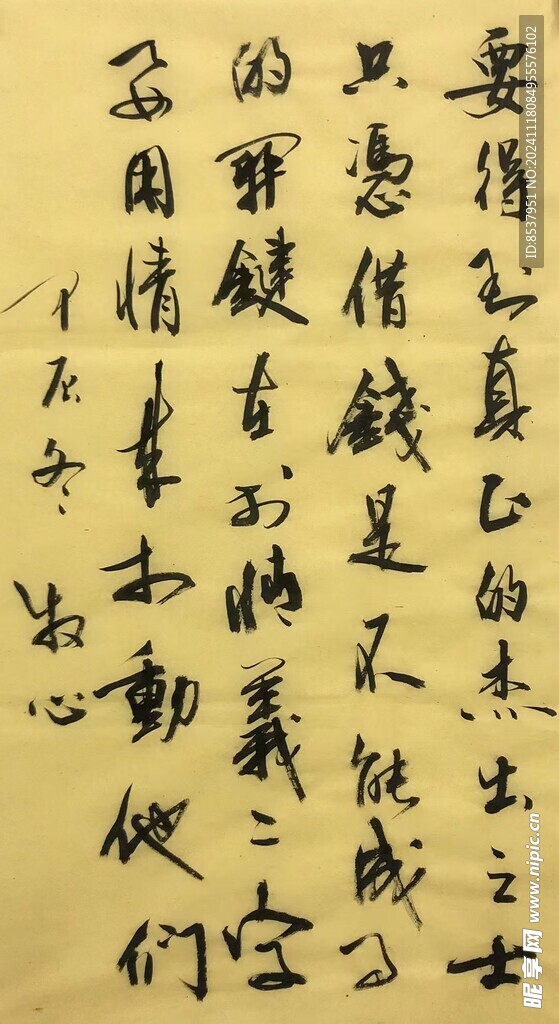 要得到真正的杰出之士
只憑借錢是不能成事
的關鍵在於情義二字
要用情來打動他們
甲辰冬 牧心
ID:8537951 NO:20241118084955576102
昵享网 www.nipic.cn